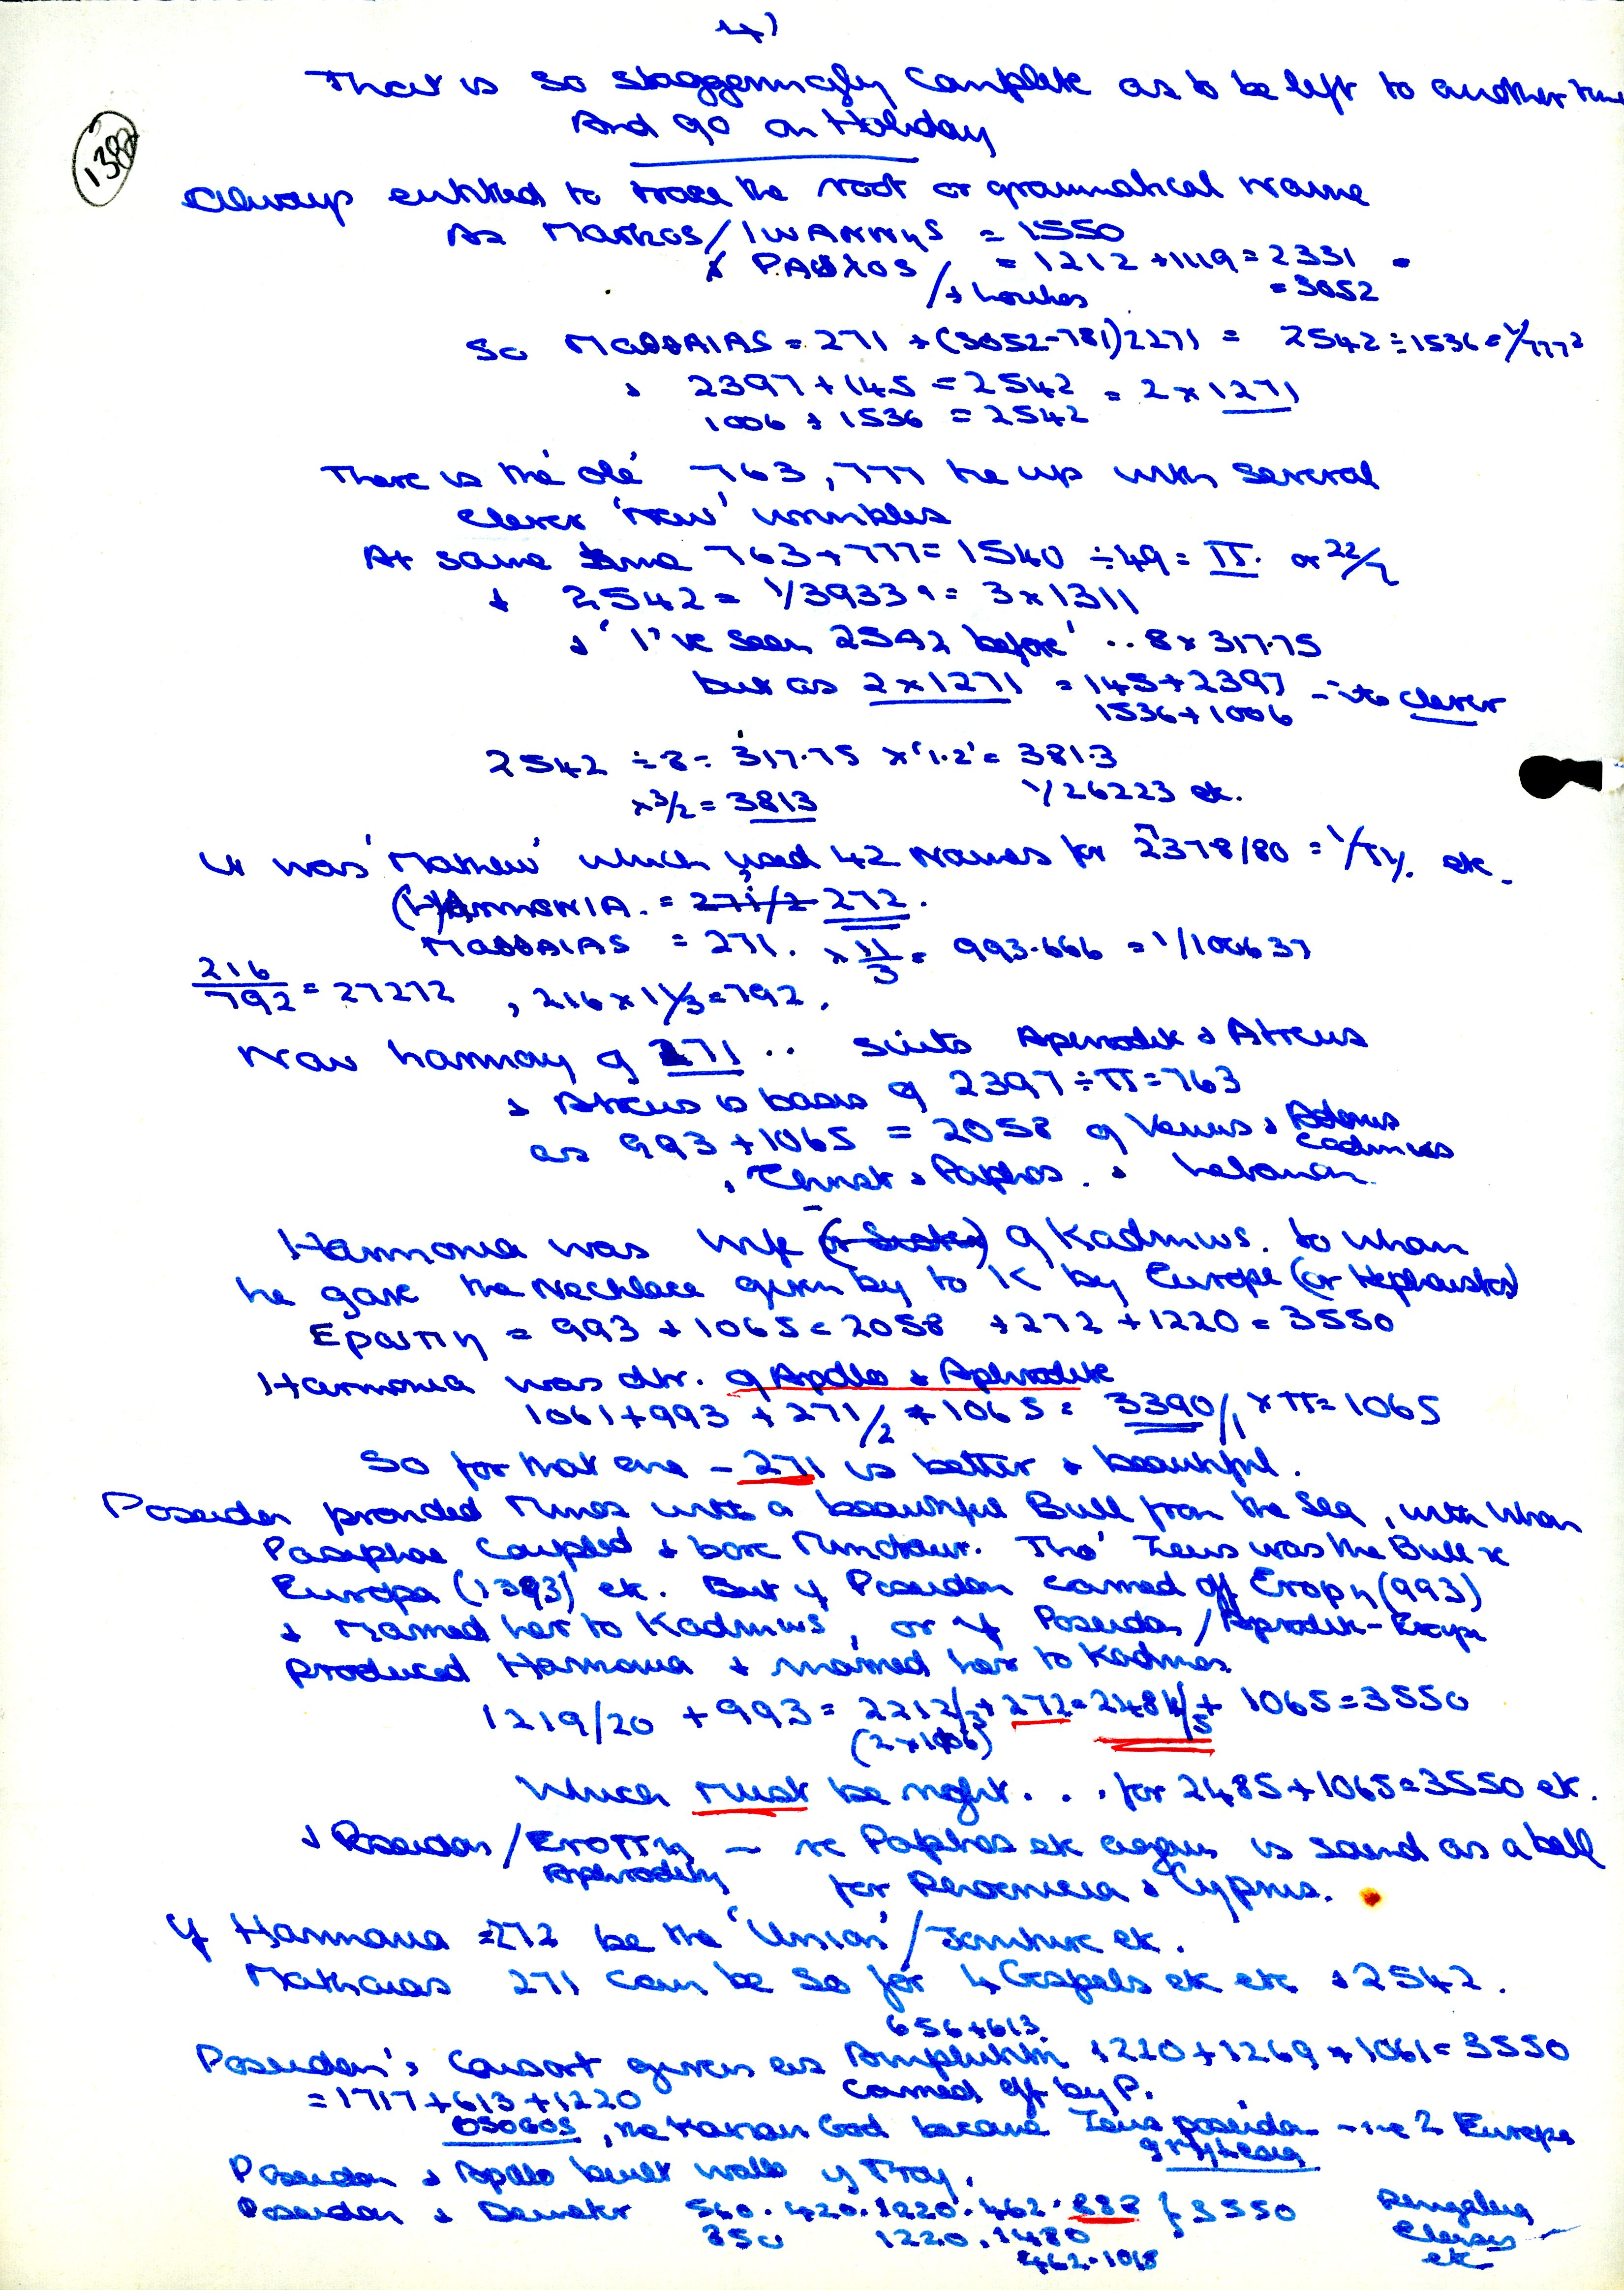 4)
That is so staggeringly complete as to be left to another time
And go on Holiday
1382
Always entitled to trace the root or grammatical name
As Markos / IWANNHS = 1550
& PAULOS = 1212 + 1119 = 2331
/ + Loukas = 3052
So MaθθAIAS = 271 + (3052-781) 2271 = 2542 ÷ 1536 = 1/7772
+ 2397 + 145 = 2542 = 2 x 1271
1006 + 1536 = 2542
There is the 'ole' 763, 777 tie up with several
clever 'new' wrinkles
At same time 763 + 777 = 1540 ÷ 49 = π. or 22/7
+ 2542 = 1/3933 9 = 3 x 1311
+ 'I've seen 2542 before' .. 8 x 317.75
but as 2 x 1271 = 145 + 2397 - its clever
1536 + 1006
2542 ÷ 8 = 317.75 x '1.2' = 381.3
x 3/2 = 3813 1/26223 etc.
It was 'Mathew' which used 42 names for 2378/80 = 1/42. etc.
(H)ARMONIA. = 271/2 272.
MaθθAIAS = 271. x 11/3 = 993.666 = 1/100637
216/792 = 27272 , 216 x 11/3 = 792.
Now harmony of 271 .. suits Aphrodite & Atreus
+ Atreus is basis of 2397 ÷ π = 763
as 993 + 1065 = 2058 of Venus & Adonis
Cadmus
, Christ & Paphos. & Lebanon.
Harmonia was wife (or Sister) of Kadmus. to whom
he gave the Necklace given by to K by Europe (or Hephaistos)
EροπΠη = 993 + 1065 = 2058 + 272 + 1220 = 3550
Harmonia was dtr. of Apollo & Aphrodite
1061 + 993 + 271/2 + 1065 = 3390/1 x π = 1065
So for that one - 271 is better & beautiful.
Poseidon provided Minos with a beautiful Bull from the Sea, with whom
Pasiphae coupled & bore Minotaur. Tho' Zeus was the Bull re
Europa (1393) etc. But if Poseidon carried off Eropη (993)
& married her to Kadmus, or if Poseidon / Aprodite - Erope
produced Harmonia & married her to Kadmos
1219/20 + 993 = 2212/3 + 272 = 2484/5 + 1065 = 3550
(2 x 1106)
Which must be right . . . for 2485 + 1065 = 3550 etc.
& Poseidon / EroΠη - re Paphos etc again is sound as a bell
Aphroditη for Phoenicia & Cyprus.
If Harmonia = 272 be the 'Union' / Jointure etc.
Mathaias 271 can be so for 4 Gospels etc etc & 2542.
656 + 613
Poseidon's Consort given as Amphitriti 1220 + 1269 + 1061 = 3550
= 1717 + 613 + 1220 carried off by P.
OSOGOS, the Karian God became Zeus poseidon - re ? Europe
Poseidon & Apollo built walls of Troy.
Poseidon & Demeter 560. 420. 1220. 462. 888 } 3550
850 1220. 1480
462. 1018
etc